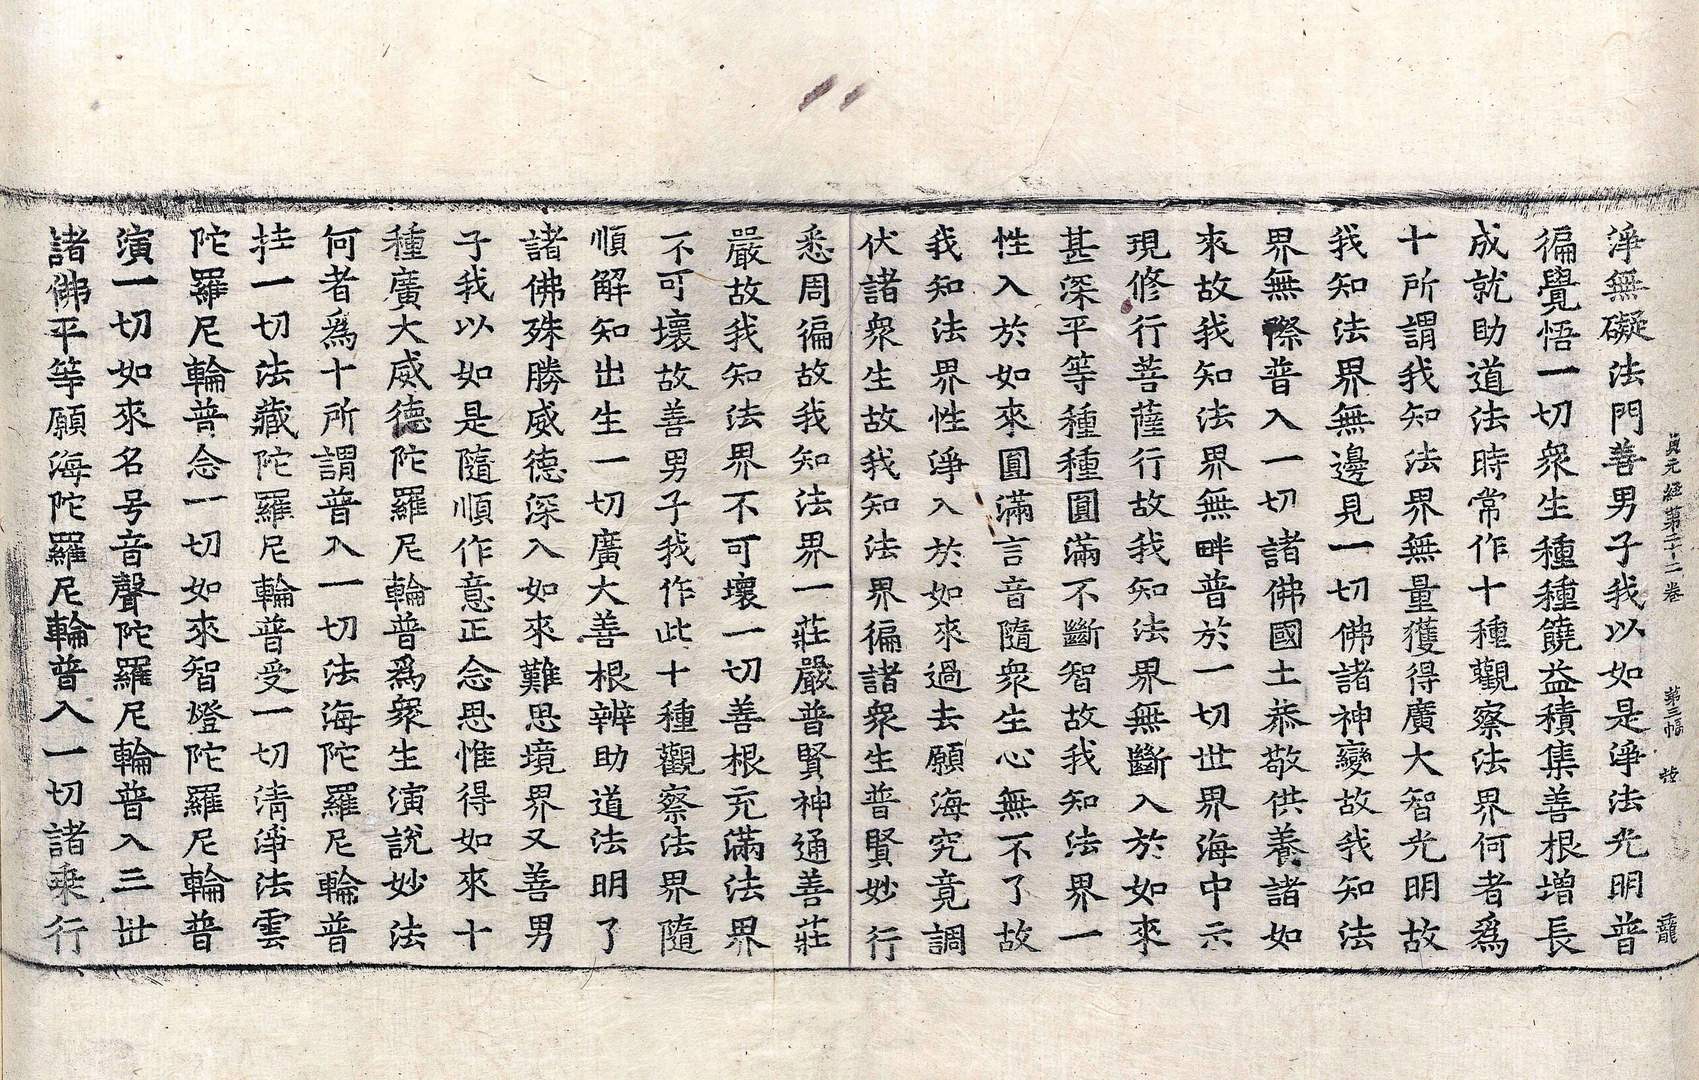 貞元經第二十二卷 第三幅 龍
淨無礙法門善男子我以如是淨法光明普
徧覺悟一切衆生種種饒益積集善根增長
成就助道法時常作十種觀察法界何者爲
十所謂我知法界無量獲得廣大智光明故
我知法界無邊見一切佛諸神變故我知法
界無際普入一切諸佛國土恭敬供養諸如
來故我知法界無畔普於一切世界海中示
現修行菩薩行故我知法界無斷入於如來
甚深平等種種圓滿不斷智故我知法界一
性入於如來圓滿言音隨衆生心無不了故
我知法界性淨入於如來過去願海究竟調
伏諸衆生故我知法界徧諸衆生普賢妙行
悉周徧故我知法界一莊嚴普賢神通善莊
嚴故我知法界不可壞一切善根充滿法界
不可壞故善男子我作此十種觀察法界隨
順解知出生一切廣大善根辨助道法明了
諸佛殊勝威德深入如來難思境界又善男
子我以如是隨順作意正念思惟得如來十
種廣大威德陀羅尼輪普爲衆生演說妙法
何者爲十所謂普入一切法海陀羅尼輪普
持一切法藏陀羅尼輪普受一切清淨法雲
陀羅尼輪普念一切如來智燈陀羅尼輪普
演一切如來名号音聲陀羅尼輪普入三世
諸佛平等願海陀羅尼輪普入一切諸乘行